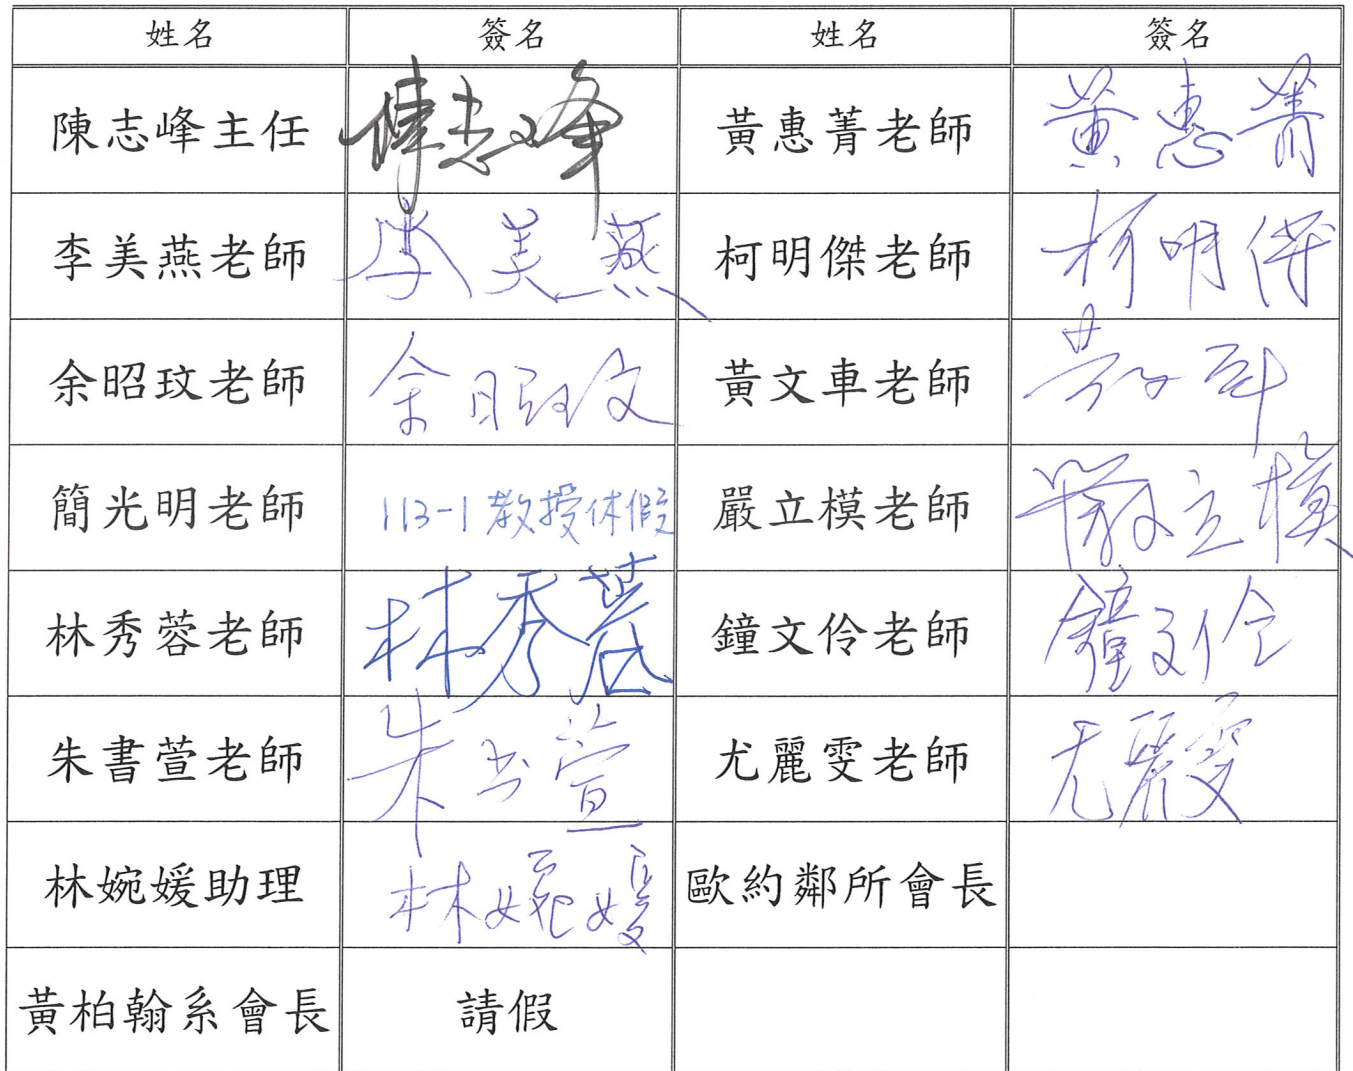 姓名 簽名 姓名 簽名
陳志峰主任 陳志峰 黃惠菁老師 黃惠菁
李美燕老師 李美燕 柯明傑老師 柯明傑
余昭玟老師 余昭玟 黃文車老師 黃文車
簡光明老師 113-1 教授休假 嚴立模老師 嚴立模
林秀蓉老師 林秀蓉 鐘文伶老師 鐘文伶
朱書萱老師 朱书萱 尤麗雯老師 尤麗雯
林婉媛助理 林婉媛 歐約鄰所會長
黃柏翰系會長 請假